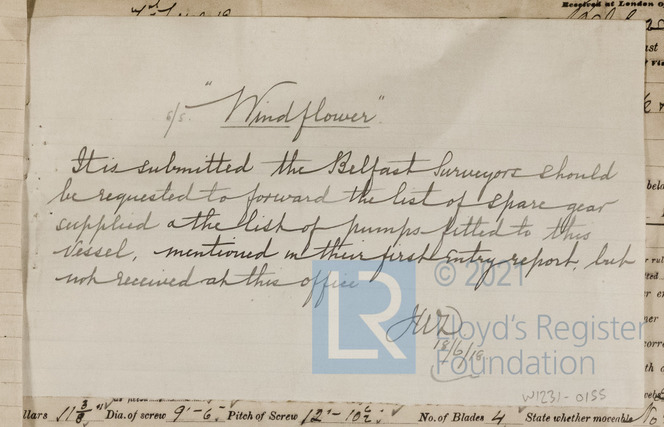 Received at London
s/s. "Windflower".
It is submitted the Belfast Surveyors should
be requested to forward the list of spare gear
supplied & the list of pumps fitted to this
Vessel, mentioned in their first entry report, but
not received at this office
18/6/18
LR
© 2021
Lloyd's Register
Foundation
W1231-0155
Dia. of screw 9'-6" Pitch of Screw No. of Blades 4 State whether moveable No